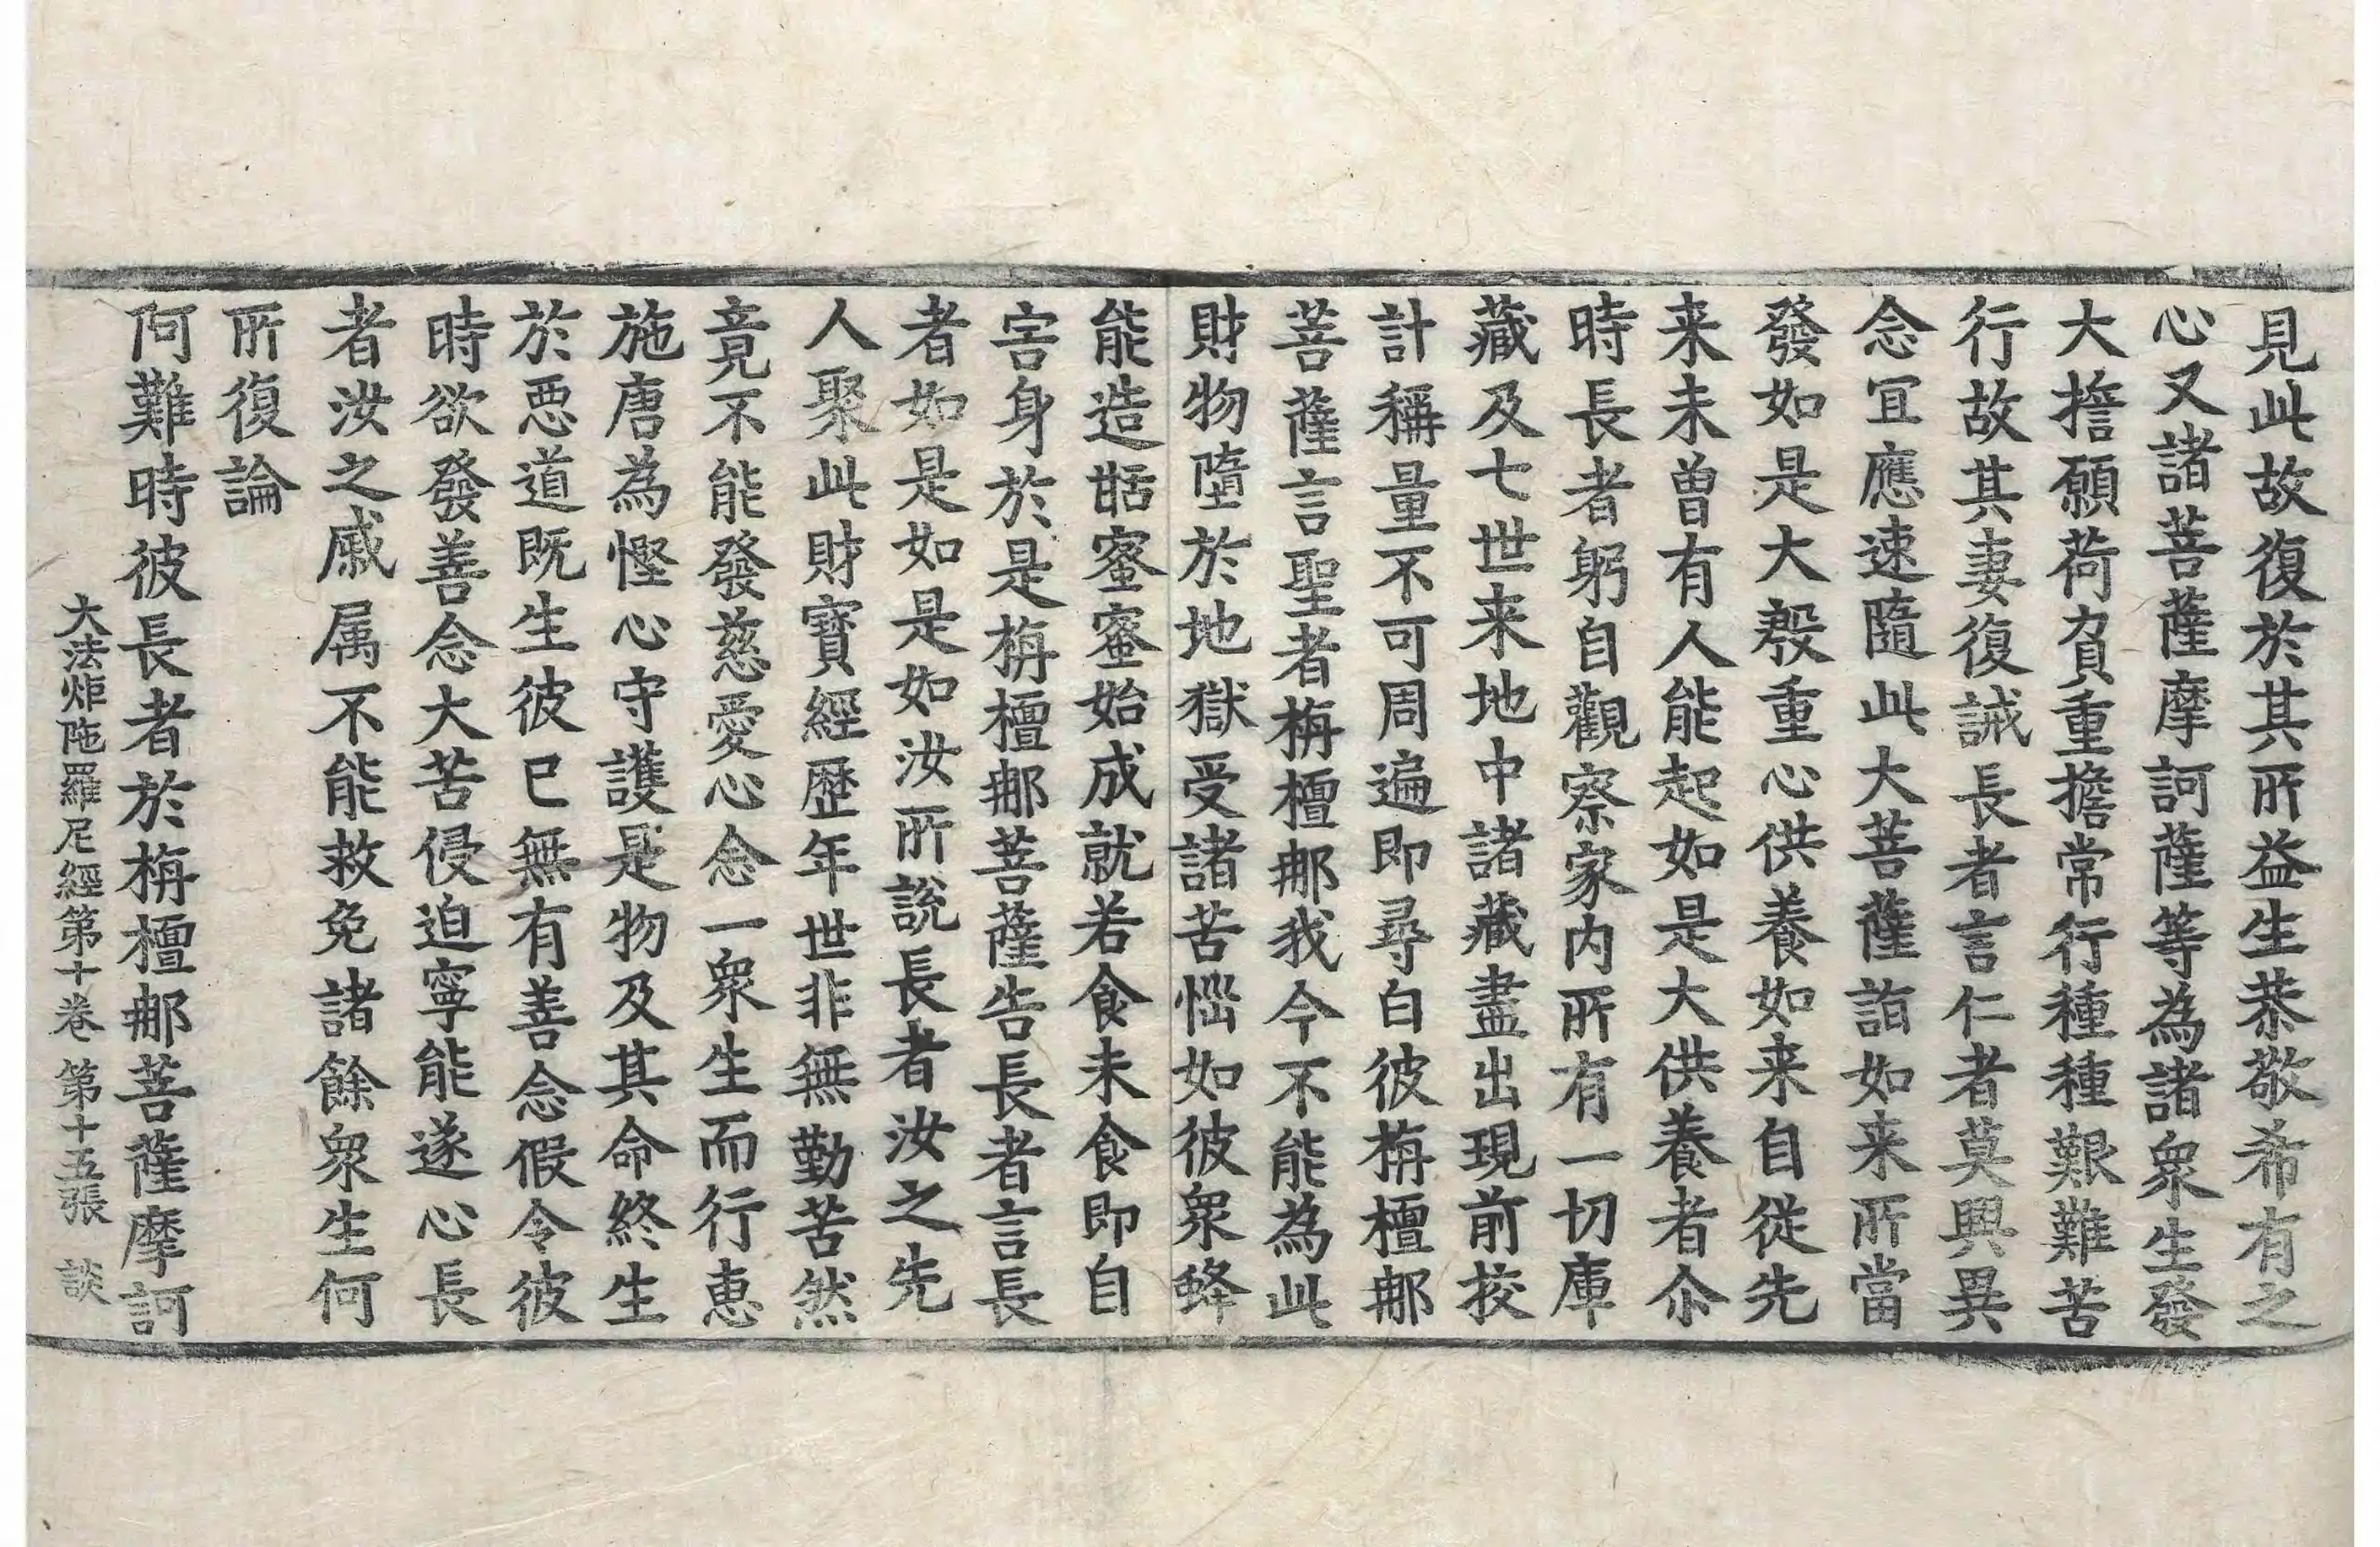 見此故復於其所益生恭敬希有之
心又諸菩薩摩訶薩等為諸衆生發
大擔願荷負重擔常行種種艱難苦
行故其妻復誡長者言仁者莫興異
念冝應速隨此大菩薩詣如来所當
發如是大殷重心供養如来自從先
来未曽有人能起如是大供養者尒
時長者躬自觀察家内所有一切庫
藏及七世来地中諸藏盡出現前挍
計稱量不可周遍即尋白彼栴檀䣯
菩薩言聖者栴檀䣯我今不能為此
財物墮於地獄受諸苦惱如彼衆蜂
能造甜蜜蜜始成就若食未食即自
害身於是栴檀䣯菩薩告長者言長
者如是如是如汝所說長者汝之先
人聚此財寳經歷年世非無勤苦然
竟不能發慈愛心念一衆生而行惠
施唐為慳心守護是物及其命終生
於惡道既生彼已無有善念假令彼
時欲發善念大苦侵迫寧能遂心長
者汝之戚属不能救免諸餘衆生何
所復論
阿難時彼長者於栴檀䣯菩薩摩訶
大法炬陁羅尼經第十卷 第十五張 談